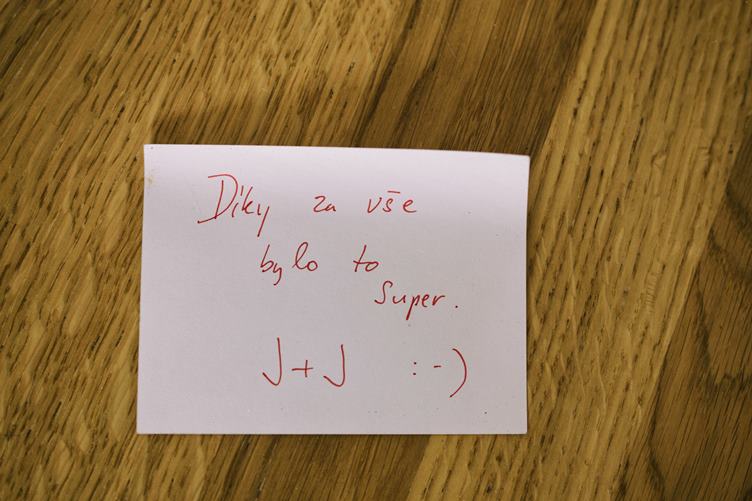 Díky za vše
bylo to
Super.
J+J :-)